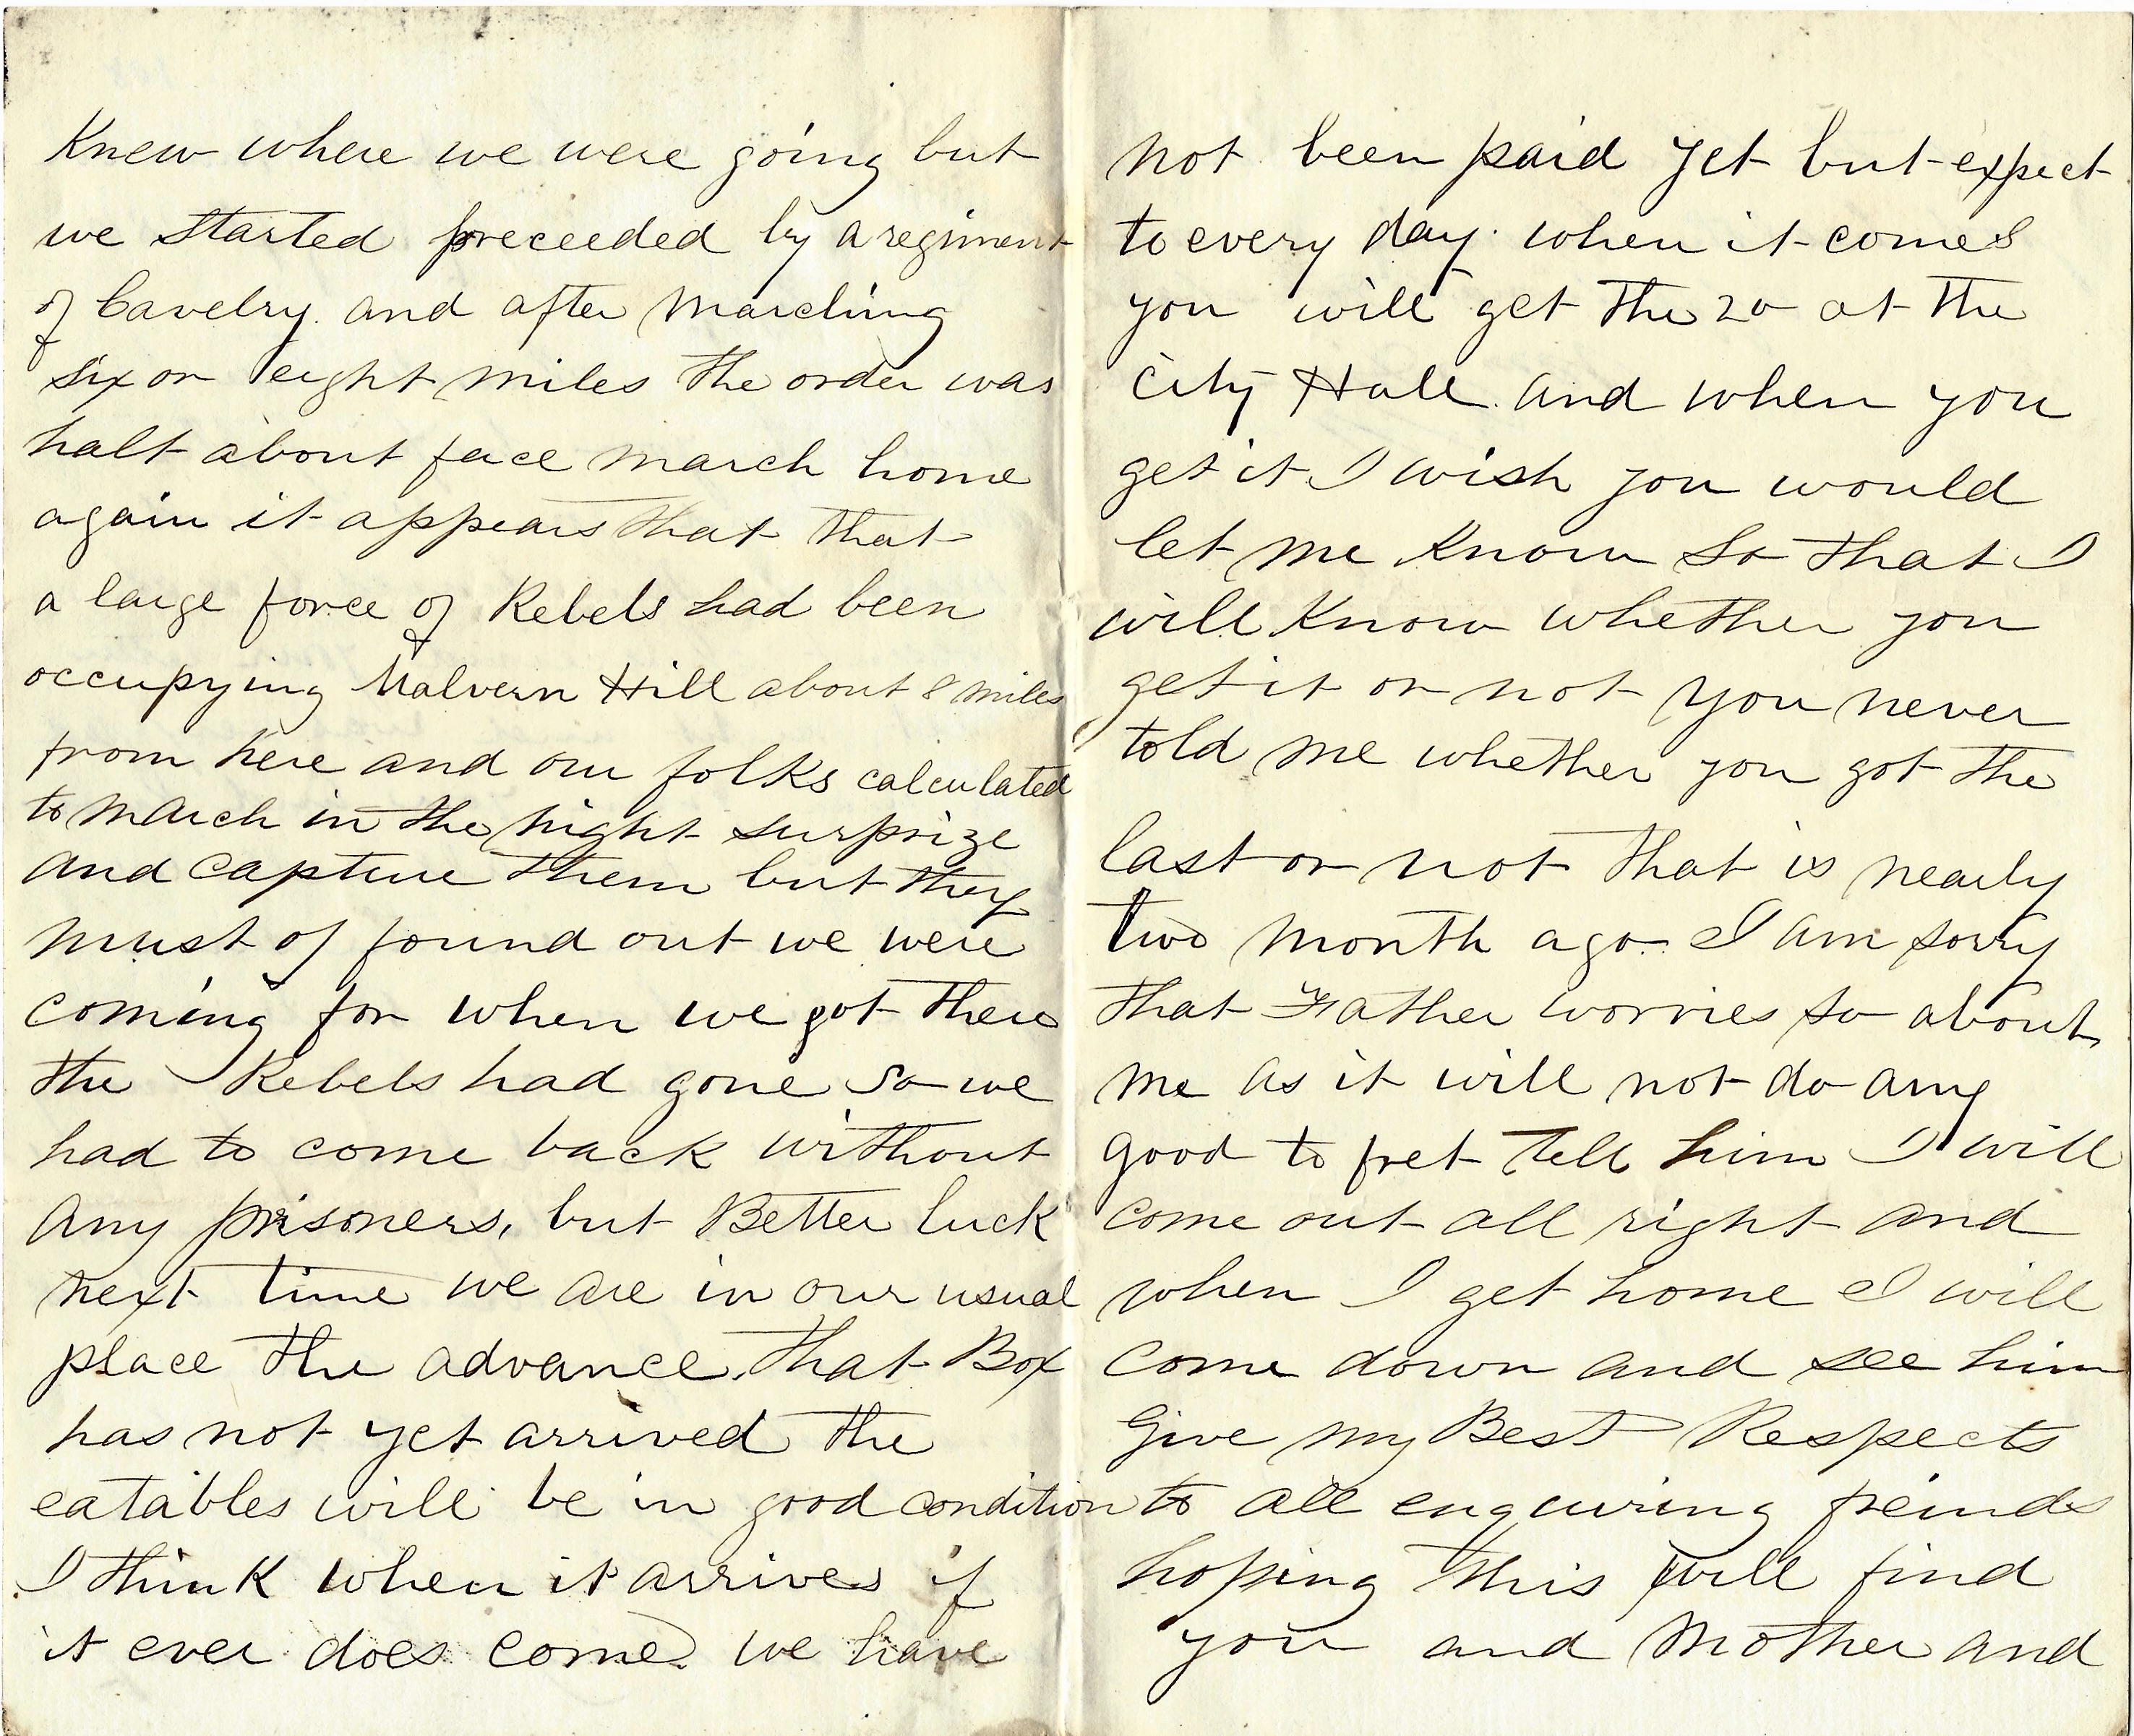 Knew where we were going but
we started preceeded by a regiment
of Cavelry. and after marching
six or eight miles the order was
halt about face march home
again it appears that that
a large force of Rebels had been
occupying Malvern Hill about 8 miles
from here and our folks calculated
to march in the night surprize
and capture them but they
must of found out we were
coming for when we got there
the Rebels had gone So we
had to come back without
any prisoners, but Better luck
next time we are in our usual
place the advance. that Box
has not yet arrived the
eatables will be in good condition
I think when it arrives if
it ever does come. we have
not been paid yet but expect
to every day. when it comes
you will get the 20 at the
City Hall. and when you
get it I wish you would
let me Know So that I
will Know whether you
get it or not you never
told me whether you got the
last or not that is nearly
two month ago. I am sorry
that Father worries so about
me as it will not do any
good to fret tell him I will
come out all right and
when I get home I will
come down and see him
Give my Best Respects
to all enquiring freinds
hoping this will find
you and Mother and